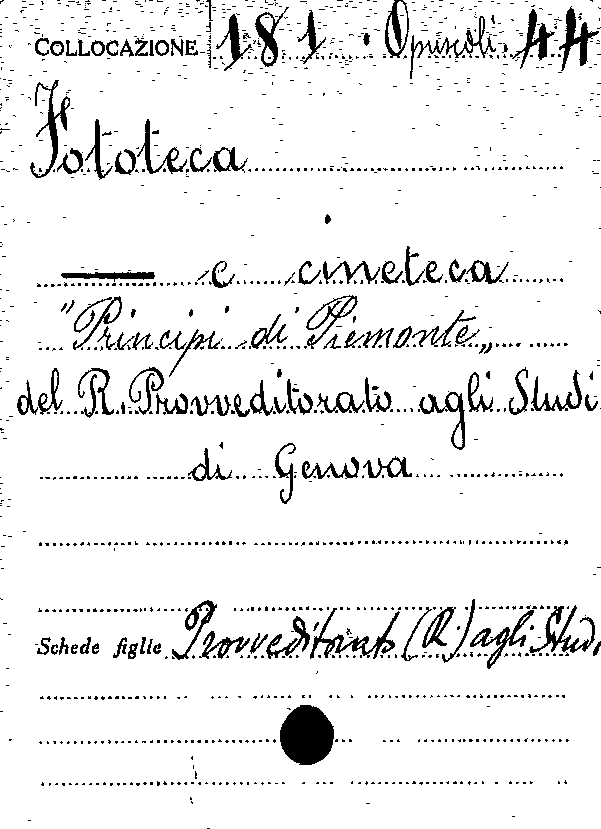 COLLOCAZIONE 181 · Opuscoli. 44
Fototeca
— e cineteca
"Principi di Piemonte„
del R. Provveditorato agli Studi
di Genova
Schede figlie Provveditorato (R.) agli Stud.